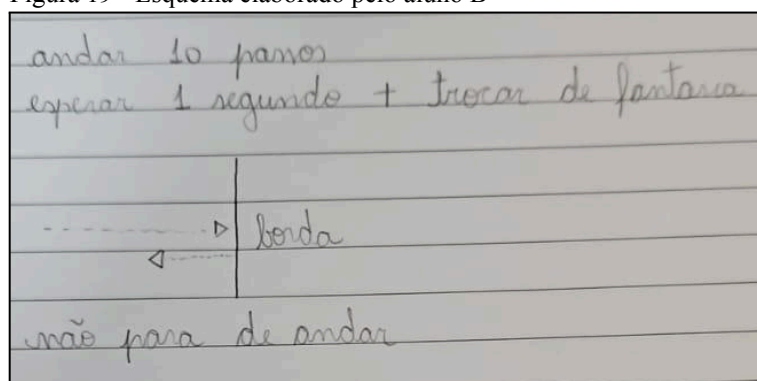 Figura 19 - Esquema elaborado pelo aluno B
andar 10 passos
esperar 1 segundo + trocar de fantasia
borda
não para de andar